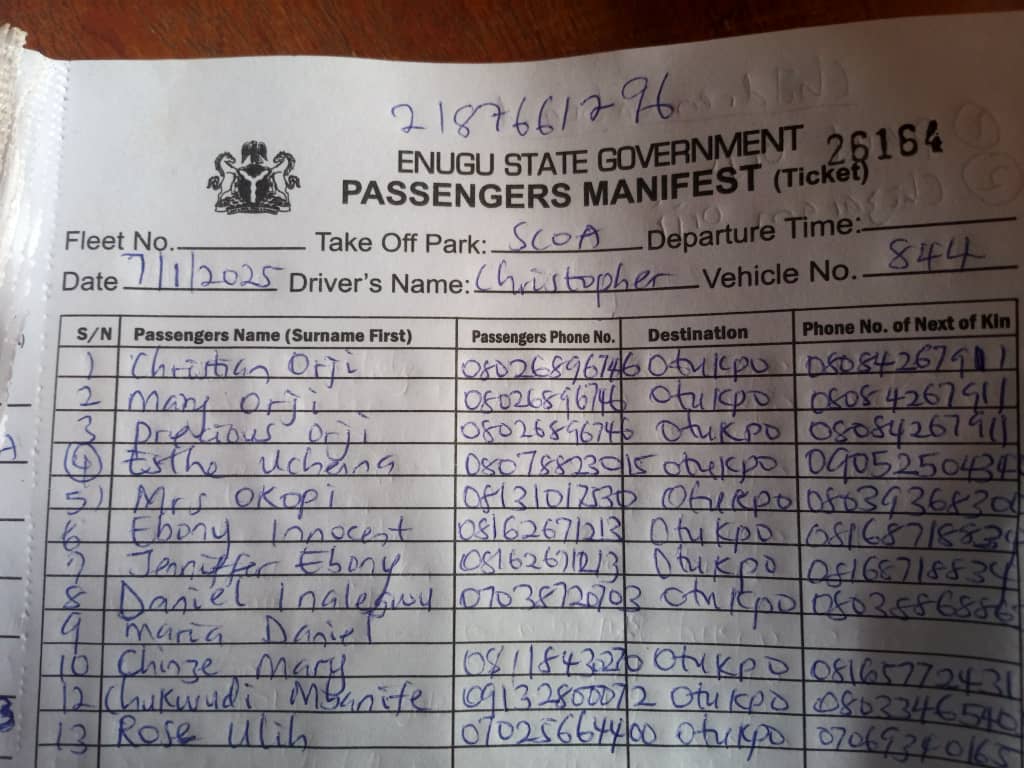 2187661296
ENUGU STATE GOVERNMENT 26164
PASSENGERS MANIFEST (Ticket)
Fleet No. Take Off Park: SCOA Departure Time:
Date 7/1/2025 Driver's Name: Christopher Vehicle No. 844
S/N Passengers Name (Surname First) Passengers Phone No. Destination Phone No. of Next of Kin
1 Christian Orji 08026896746 Otukpo 08084267911
2 Mary Orji 08026896746 Otukpo 08084267911
3 Precious Orji 08026896746 Otukpo 08084267911
4 Esthe Uchena 08078823015 otukpo 0905250434
5) Mrs OKOPi 08131012530 Otukpo 0803936830
6 Ebony Innocent 08162671213 Otukpo 0816871883
7 Jenniffer Ebony 08162671213 Otukpo 08168718834
8 Daniel Inalegwu 07038720703 Otukpo 0803886886
9 Maria Daniel
10 Chinze Mary 08118432270 Otukpo 08165772431
12 Chukwudi Mbanife 09132800072 Otukpo 0803346540
13 Rose Ulih 07025664400 Otukpo 07069340165